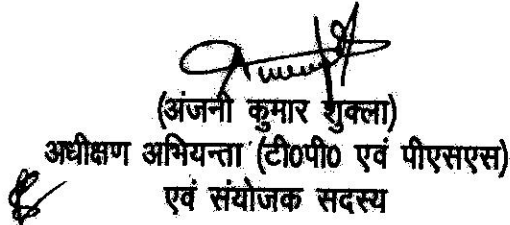 (अंजनी कुमार शुक्ला)
अधीक्षण अभियन्ता (टी0पी0 एवं पीएसएस)
एवं संयोजक सदस्य